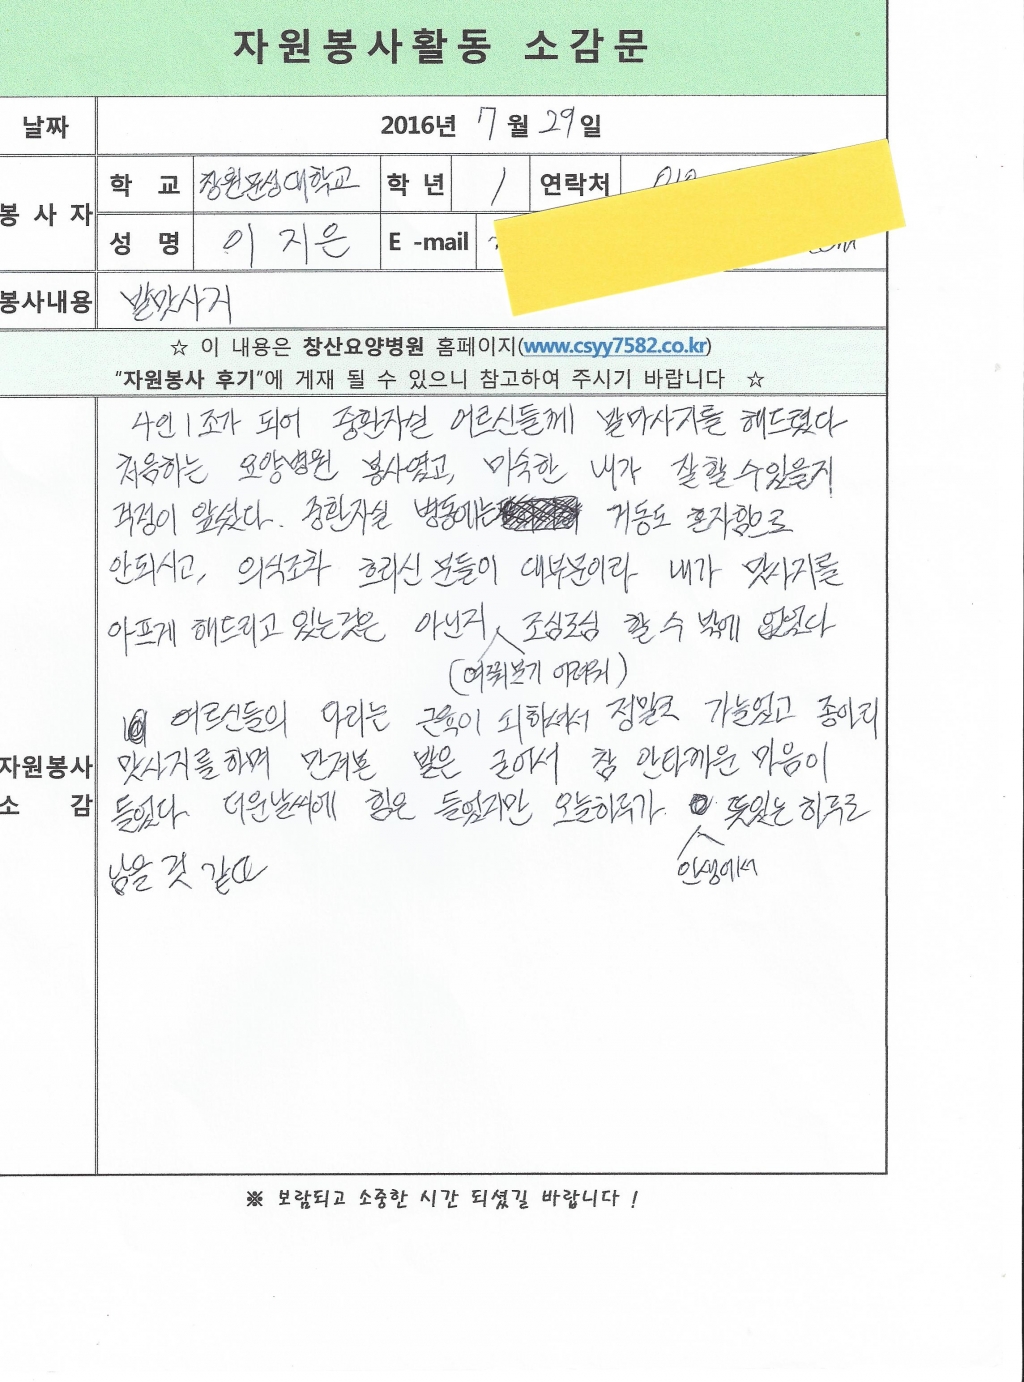 자원봉사활동 소감문
날짜 2016년 7월 29일
봉 사 자
학 교 창원문성대학교 학 년 1 연락처 010
성 명 이 지은 E -mail
봉사내용 발맛사지
☆ 이 내용은 창산요양병원 홈페이지(www.csyy7582.co.kr)
"자원봉사 후기"에 게재 될 수 있으니 참고하여 주시기 바랍니다 ☆
자원봉사
소 감
4인1조가 되어 중환자실 어르신들께 발마사지를 해드렸다
처음하는 요양병원 봉사였고, 미숙한 내가 잘할 수있을지
걱정이 앞섰다. 중환자실 병동에는 거동도 혼자힘으로
안되시고, 의식조차 흐리신 분들이 대부분이라 내가 맛사지를
아프게 해드리고 있는것은 아닌지 조심조심 할 수 밖에 없었다
(여쭤보기 어려워)
어르신들의 다리는 근육이 쇠하셔서 정말로 가늘었고 종아리
맛사지를 하며 만져본 발은 굳어서 참 안타까운 마음이
들었다. 더운날씨에 힘은 들었지만 오늘하루가 뜻있는 하루로
인생에서
남을 것 같다
※ 보람되고 소중한 시간 되셨길 바랍니다 !